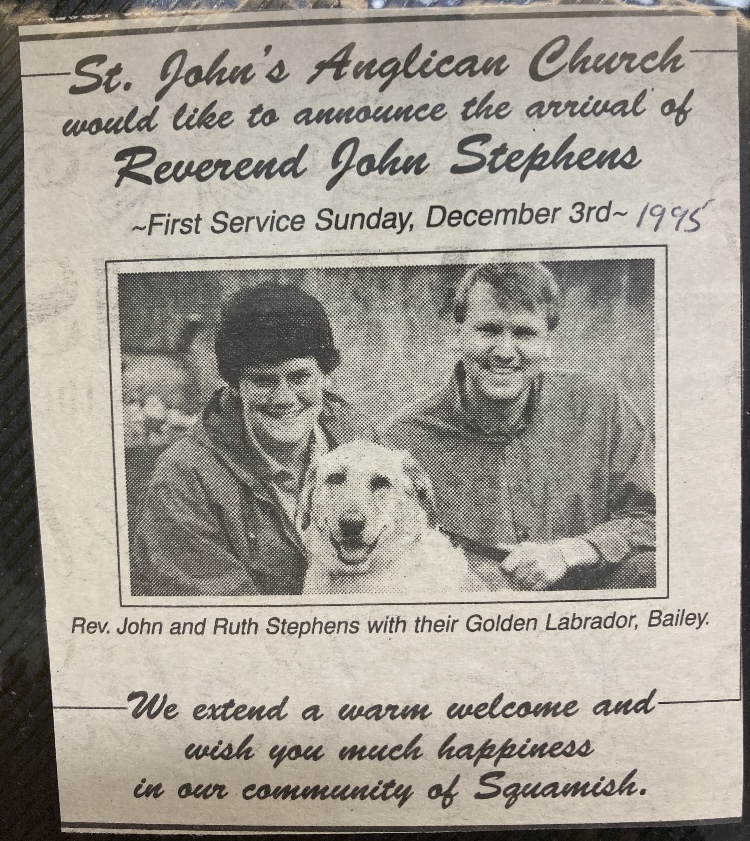 St. John's Anglican Church
would like to announce the arrival of
Reverend John Stephens
~First Service Sunday, December 3rd~ 1995
Rev. John and Ruth Stephens with their Golden Labrador, Bailey.
We extend a warm welcome and
wish you much happiness
in our community of Squamish.